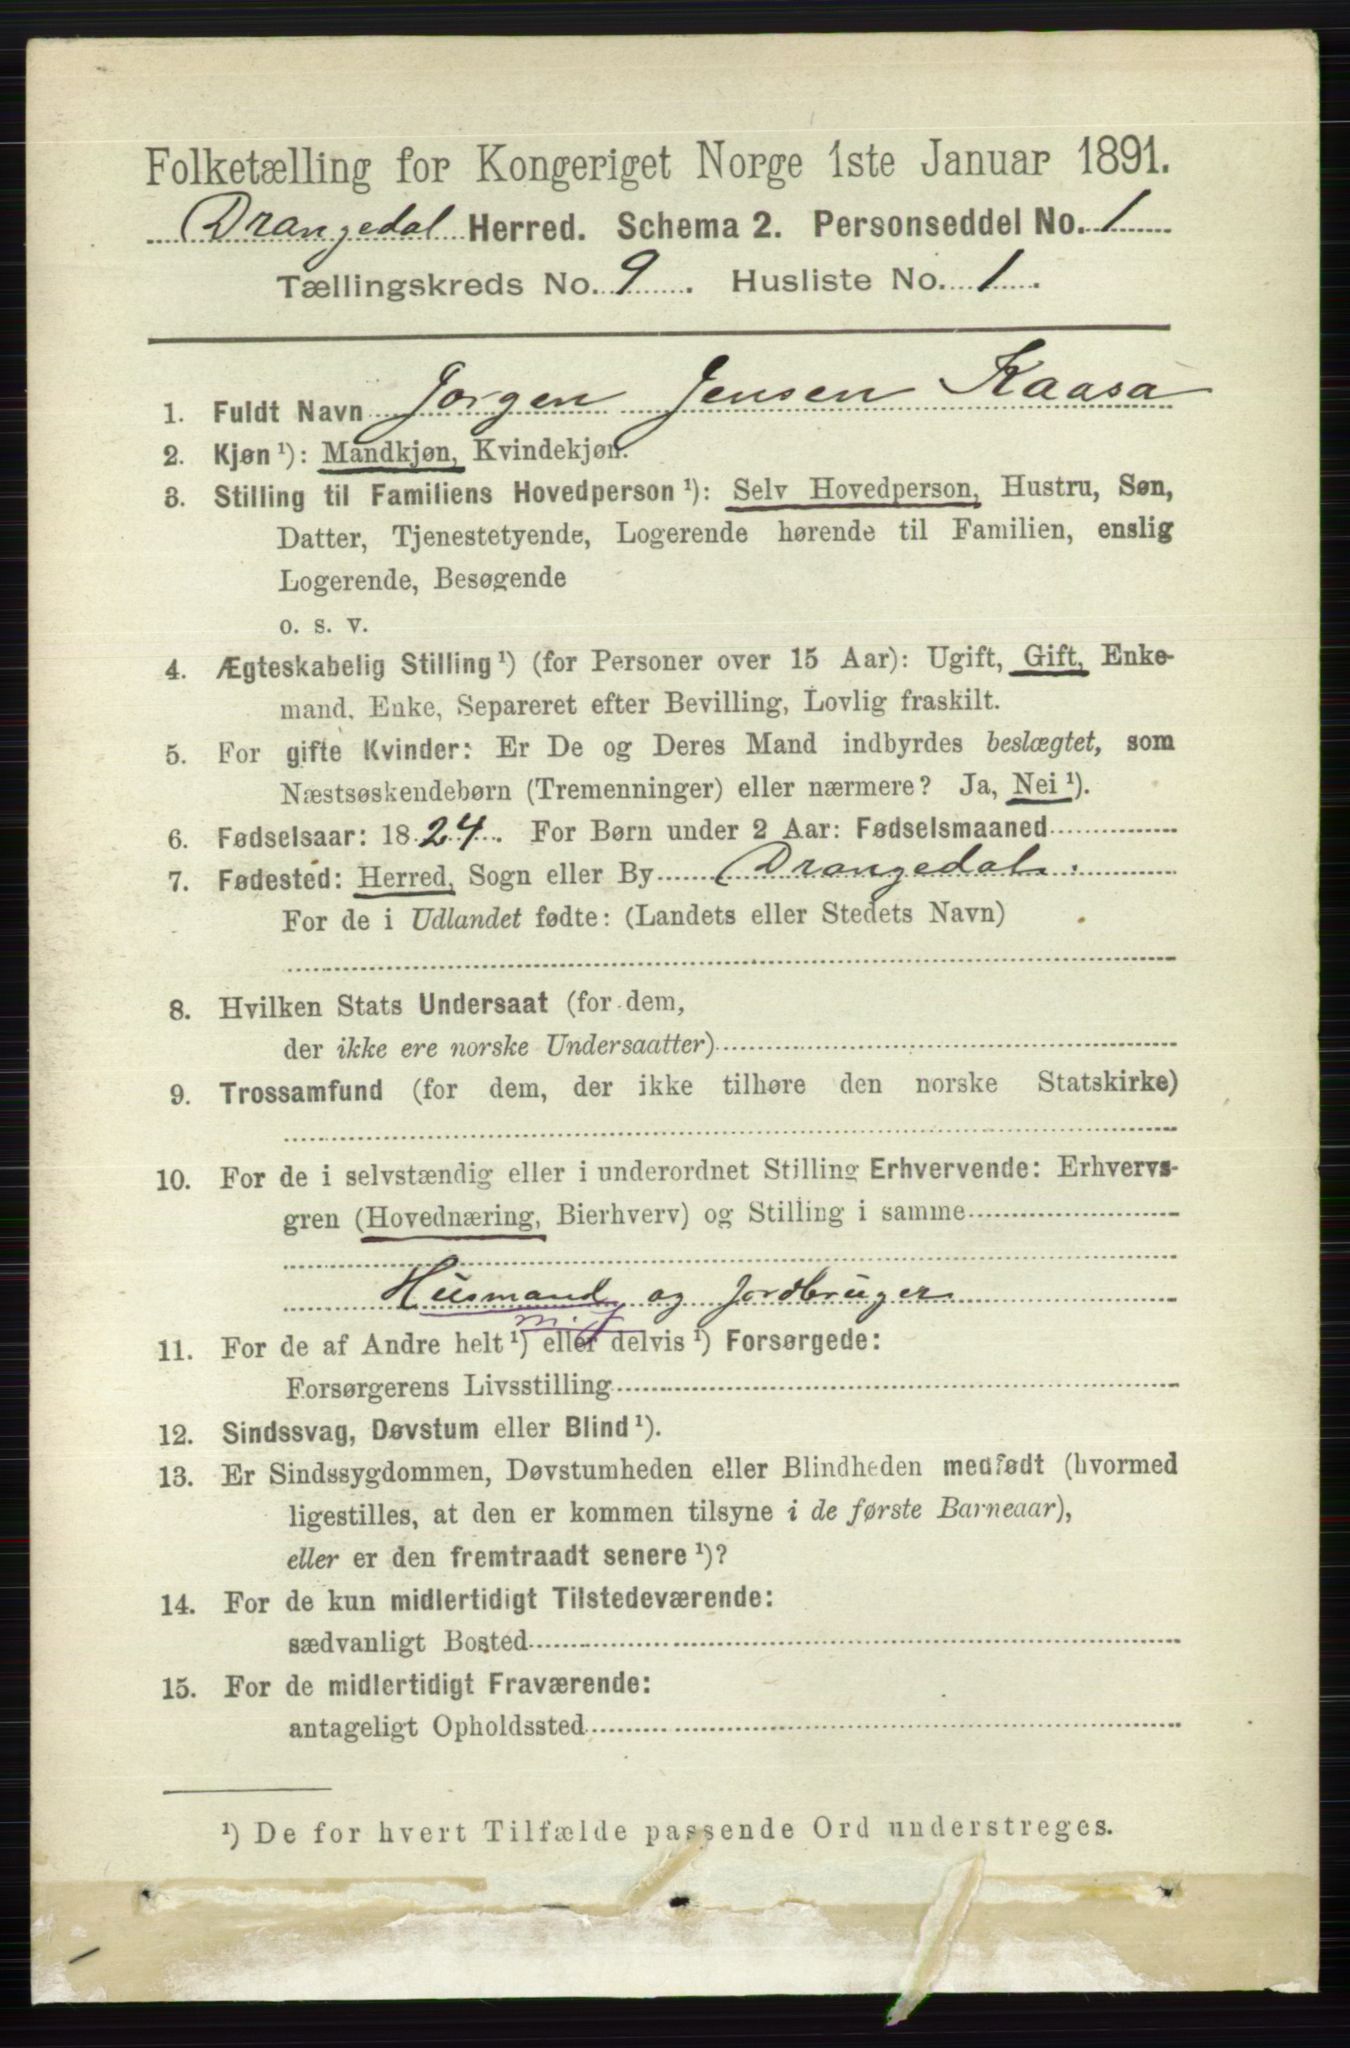 Folketælling for Kongeriget Norge 1ste Januar 1891.
Drangedal Herred. Schema 2. Personseddel No. 1
Tællingskreds No. 9. Husliste No. 1.
1. Fuldt Navn Jørgen Jensen Kaasa
2. Kjøn ¹): Mandkjøn, Kvindekjøn.
3. Stilling til Familiens Hovedperson ¹): Selv Hovedperson, Hustru, Søn,
Datter, Tjenestetyende, Logerende hørende til Familien, enslig
Logerende, Besøgende
o. s. v.
4. Ægteskabelig Stilling ¹) (for Personer over 15 Aar): Ugift, Gift, Enke-
mand, Enke, Separeret efter Bevilling, Lovlig fraskilt.
5. For gifte Kvinder: Er De og Deres Mand indbyrdes beslægtet, som
Næstsøskendebørn (Tremenninger) eller nærmere? Ja, Nei ¹).
6. Fødselsaar: 1824. For Børn under 2 Aar: Fødselsmaaned
7. Fødested: Herred, Sogn eller By Drangedal.
For de i Udlandet fødte: (Landets eller Stedets Navn)
8. Hvilken Stats Undersaat (for dem,
der ikke ere norske Undersaatter)
9. Trossamfund (for dem, der ikke tilhøre den norske Statskirke)
10. For de i selvstændig eller i underordnet Stilling Erhvervende: Erhvervs-
gren (Hovednæring, Bierhverv) og Stilling i samme
Husmand og Jordbruger
11. For de af Andre helt ¹) eller delvis ¹) Forsørgede:
Forsørgerens Livsstilling
12. Sindssvag, Døvstum eller Blind ¹).
13. Er Sindssygdommen, Døvstumheden eller Blindheden medfødt (hvormed
ligestilles, at den er kommen tilsyne i de første Barneaar),
eller er den fremtraadt senere ¹)?
14. For de kun midlertidigt Tilstedeværende:
sædvanligt Bosted
15. For de midlertidigt Fraværende:
antageligt Opholdssted
¹) De for hvert Tilfælde passende Ord understreges.